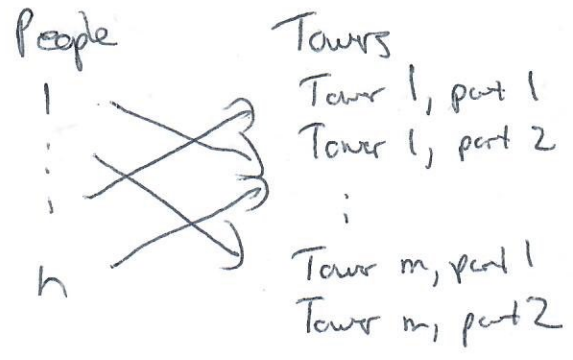 People
1
:
n
Towrs
Tower 1, part 1
Tower 1, part 2
:
Tower m, part 1
Tower m, part 2